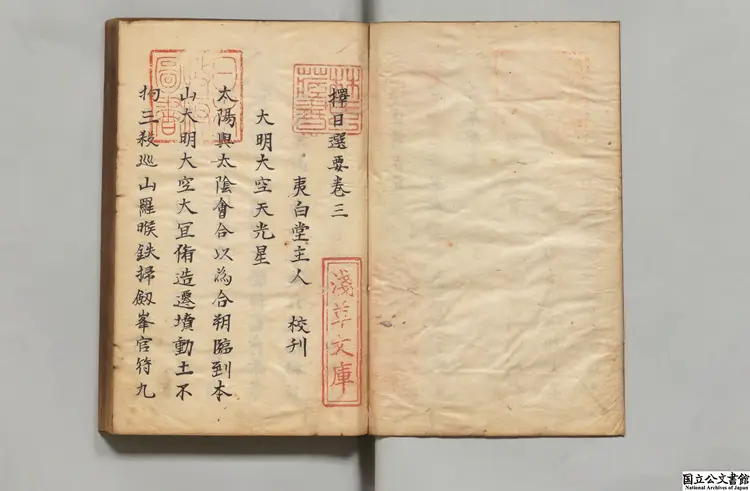 擇日選要卷三
夷白堂主人 校刋
大明大空天光星
太陽與太陰會合以為合朔臨到本
山大明大空大冝脩造遷墳動土不
拘三殺廵山羅睺鉄掃劔峯官符九
淺草文庫
日本政府圖書
林氏藏書
国立公文書館
National Archives of Japan